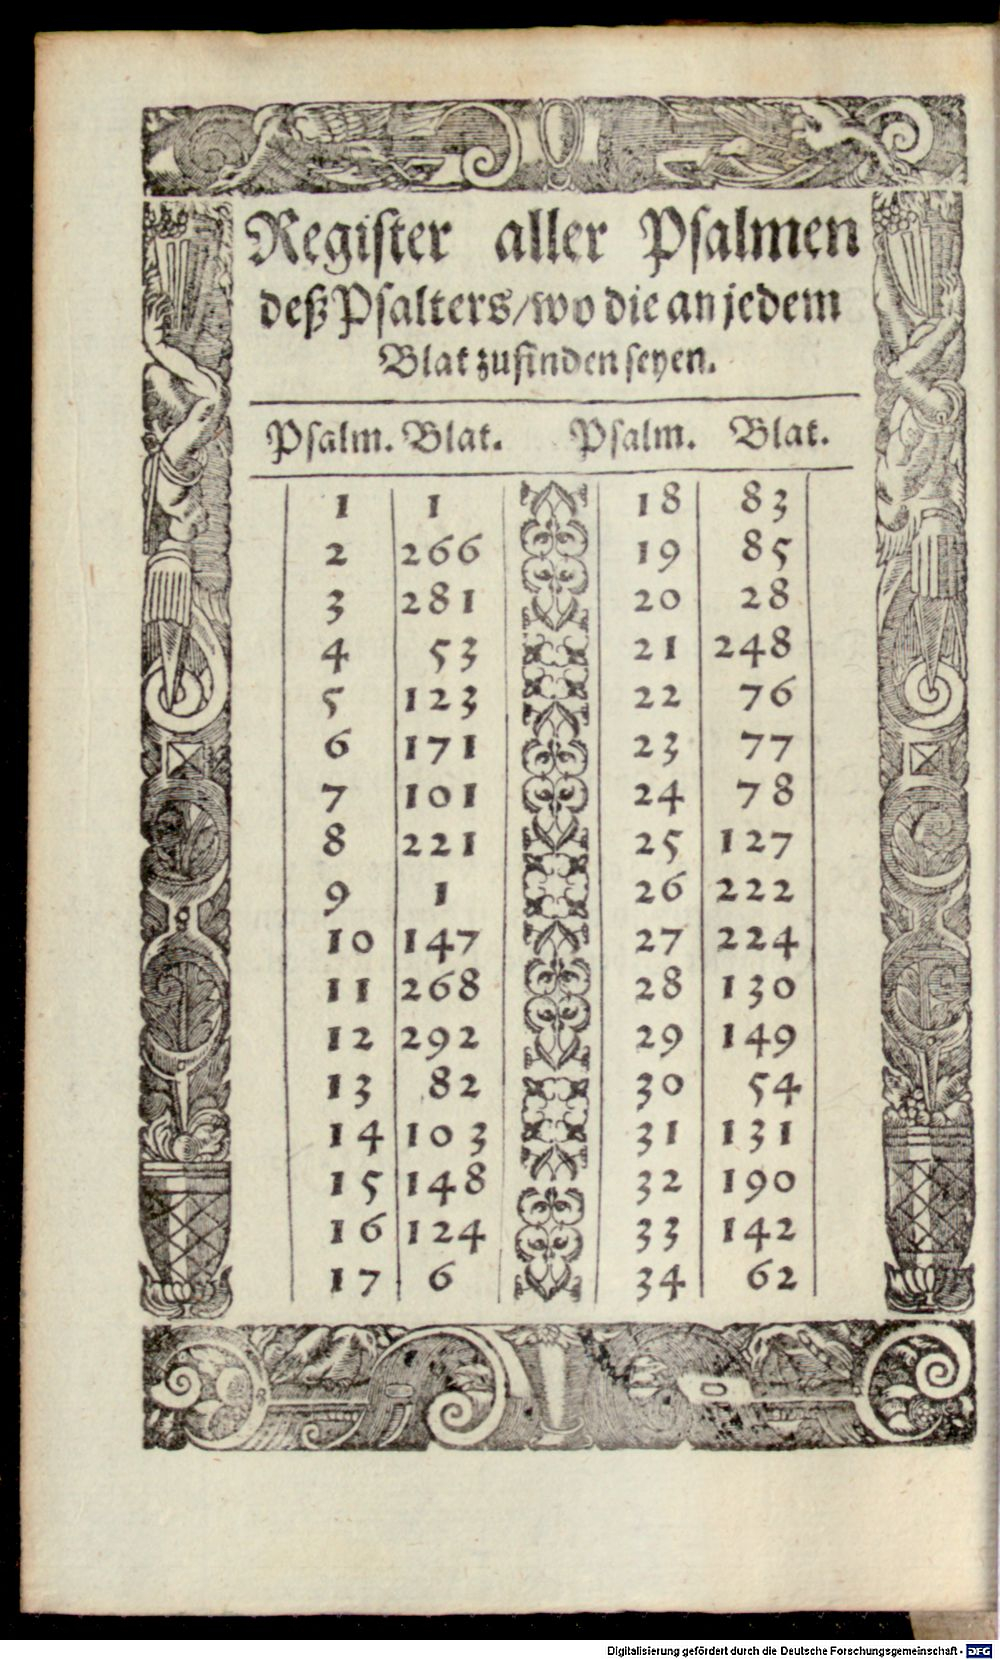 Register aller Psalmen
deß Psalters/wo die an jedem
Blat zufinden seyen.
Psalm. Blat. Psalm. Blat.
1 1 18 83
2 266 19 85
3 281 20 28
4 53 21 248
5 123 22 76
6 171 23 77
7 101 24 78
8 221 25 127
9 1 26 222
10 147 27 224
11 268 28 130
12 292 29 149
13 82 30 54
14 103 31 131
15 148 32 190
16 124 33 142
17 6 34 62
Digitalisierung gefördert durch die Deutsche Forschungsgemeinschaft - DFG